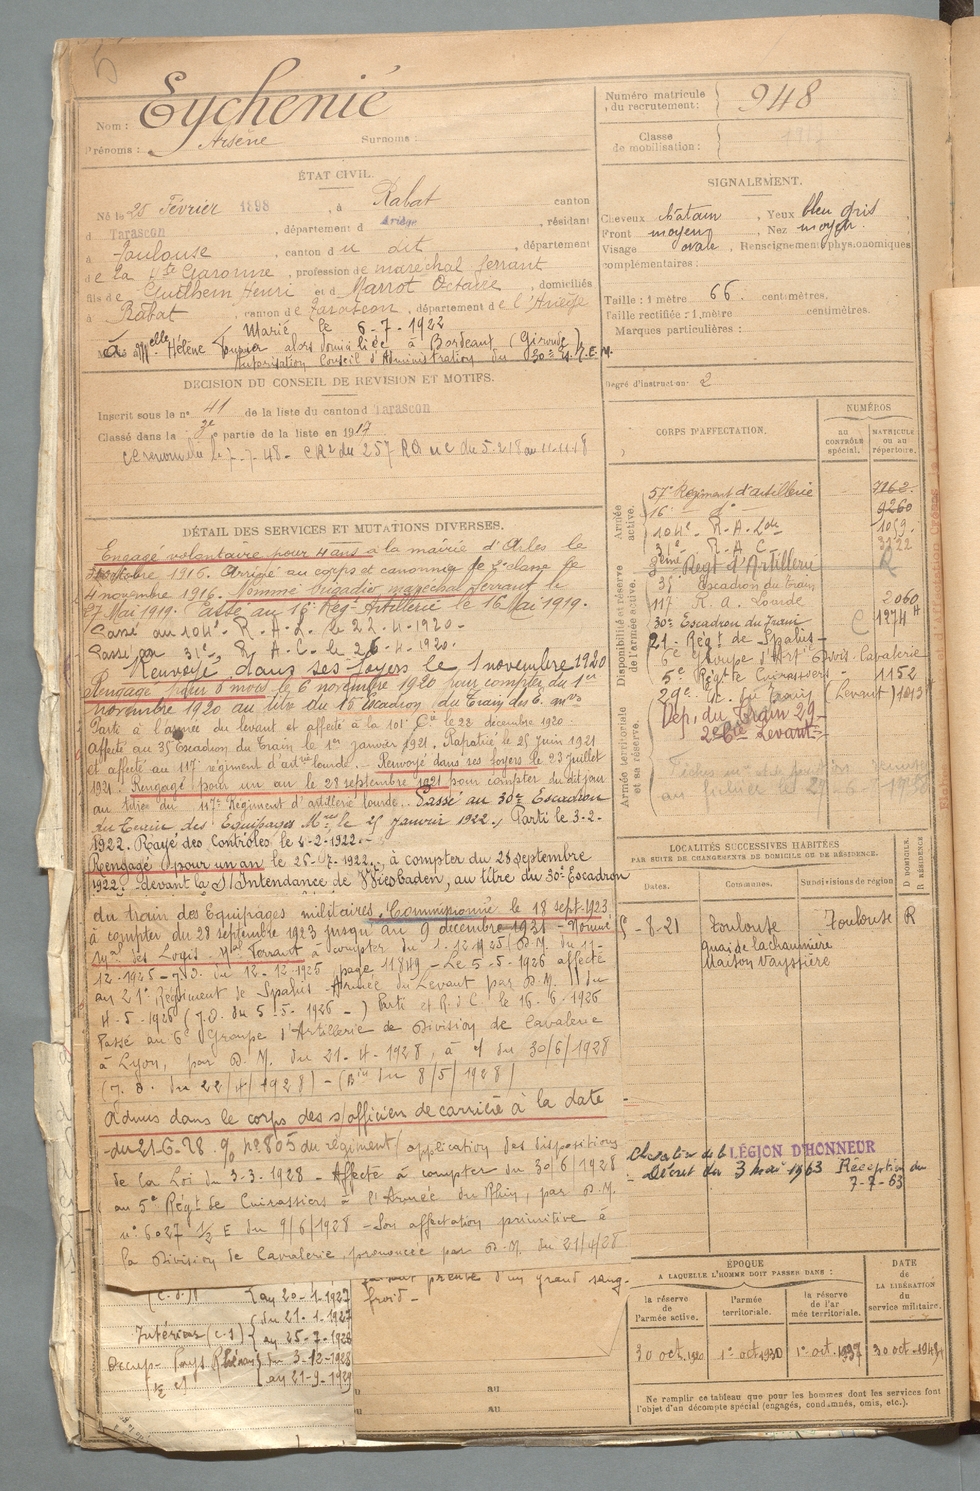 5
Nom : Eychenié
Prénoms : Arsène Surnoms :
Numéro matricule du recrutement : 948
Classe de mobilisation : 1917
ÉTAT CIVIL.
Né le 25 Février 1898, à Rabat canton
d Tarascon, département d Ariège, résidant
à Toulouse, canton d u dit, département
de La Hte Garonne, profession de maréchal ferrant
fils de Guilhem Henri et d Marrot Octavie, domiciliés
à Rabat, canton de Tarascon, département de l'Ariège
Marié le 6-7-1922
à Melle Hélène alors domiciliée à Bordeaux (Gironde)
Autorisation Conseil d'Administration du 30e E.T.E.M.
SIGNALEMENT.
Cheveux chatain, Yeux bleu gris
Front moyen, Nez moyen.
Visage ovale, Renseignements physionomiques
complémentaires :
Taille : 1 mètre 66. centimètres.
Taille rectifiée : 1 mètre centimètres.
Marques particulières :
Degré d'instruction : 2
DÉCISION DU CONSEIL DE REVISION ET MOTIFS.
Inscrit sous le n° 41 de la liste du canton d Tarascon
Classé dans la 3e partie de la liste en 1917
le 7-7-48 - CR2 du 257 RA du 5.2.18 au 11.11.18
DÉTAIL DES SERVICES ET MUTATIONS DIVERSES.
Engagé volontaire pour 4 ans à la mairie d'Arles le
octobre 1916. Arrivé au corps et canonnier de 2e classe le
4 novembre 1916. Nommé brigadier maréchal ferrant le
27 Mai 1919. Passé au 16e Rég. Artillerie le 16 Mai 1919.
Passé au 104e R.A.L. le 22-4-1920-
Passé au 31e R.A.C. le 26-4-1920.
Renvoyé dans ses foyers le 1 novembre 1920
Rengagé pour 6 mois le 6 novembre 1920 pour compter du 1er
novembre 1920 au titre du 15 Escadron du Train des E. mres
Parti à l'armée du levant et affecté à la 101e Cie le 22 décembre 1920.
Affecté au 35 Escadron du Train le 1er janvier 1921. Rapatrié le 25 Juin 1921
et affecté au 117e régiment d'artrie lourde. - Renvoyé dans ses foyers le 23 juillet
1921. Rengagé pour un an le 28 septembre 1921 pour compter du dit jour
au titre du 117e Régiment d'artillerie lourde. Passé au 30e Escadron
du Train des Equipages Mres le 25 janvier 1922. Parti le 3-2-
1922. Rayé des Contrôles le 4-2-1922.-
Rengagé pour un an le 26-7-1922, à compter du 28 septembre
1922, devant la S/Intendance de Wiesbaden, au titre du 30e Escadron
du train des Equipages militaires. Commissionné le 18 sept. 1923
à compter du 28 septembre 1923 jusqu'au 9 décembre 1931 - Nommé
Mal des Logis Mal Ferrant à compter du 1.12.1925 (D.M. du 11-
12.1925 - J.O. du 12-12-1925 page 11849 - Le 5-5-1926 affecté
au 21e Régiment de Spahis - Armée du Levant par D.M. du
4-5-1926 (J.O. du 5-5-1926 -) Parti et R.d.C. le 16-6-1926
Passé au 6e Groupe d'Artillerie de Division de Cavalerie
à Lyon, par D.M. du 21-4-1928, à c/ du 30/6/1928
(J.O. du 22/4/1928) - (Btin du 8/5/1928)
Admis dans le corps des s/officiers de carrière à la date
du 21-6-28 n° 805 du régiment (application des dispositions
de la Loi du 3-3-1928 - Affecté à compter du 30/6/1928
au 5e Régt de Cuirassiers à l'Armée du Rhin, par D.M.
n° 6027 1/2 E du 9/6/1928 - Son affectation primitive à
la Division de Cavalerie, prononcée par D.M. du 21/4/28
(C.d) au 20-1-1927
Intérieur (c.s) du 21-1-1927
au 25-7-1928
Occup. Pays Rhénans du 3-12-1928
au 21-9-1929
preuve d'un grand sang-
froid -
au
au
CORPS D'AFFECTATION.
NUMÉROS
AU CONTRÔLE spécial.
MATRICULE ou au répertoire.
Armée active.
57e Régiment d'artillerie 7162
16e d° 9260
104e R.A. Lde 1059
31e R.A.C. 3122
Disponibilité et réserve de l'armée active.
Régt d'Artillerie
35e Escadron du train
117 R.A. Lourde 2060
30e Escadron du train C 1974
21e Régt de Spahis
6e Groupe d'Art Divis. Cavalerie
5e Régt de Cuirassiers 1152
29e du train (Levant) 1013
Armée territoriale et sa réserve.
Dép. du Train 29
2e Cie Levant
LOCALITÉS SUCCESSIVES HABITÉES
PAR SUITE DE CHANGEMENTS DE DOMICILE OU DE RÉSIDENCE.
Dates. Communes. Subdivisions de région D DOMICILE. R RÉSIDENCE
-8-21 Toulouse Toulouse R
quai de la chaumière
Maison Vayssière
Chevalier de la LÉGION D'HONNEUR
Décret du 3 mai 1963 Réception du
7-7-63
ÉPOQUE
A LAQUELLE L'HOMME DOIT PASSER DANS :
la réserve de l'armée active. l'armée territoriale. la réserve de l'armée territoriale.
DATE de LA LIBÉRATION du service militaire.
30 oct. 1920 1er oct. 1930 1er oct. 1937 30 oct.
Ne remplir ce tableau que pour les hommes dont les services font
l'objet d'un décompte spécial (engagés, condamnés, omis, etc.).